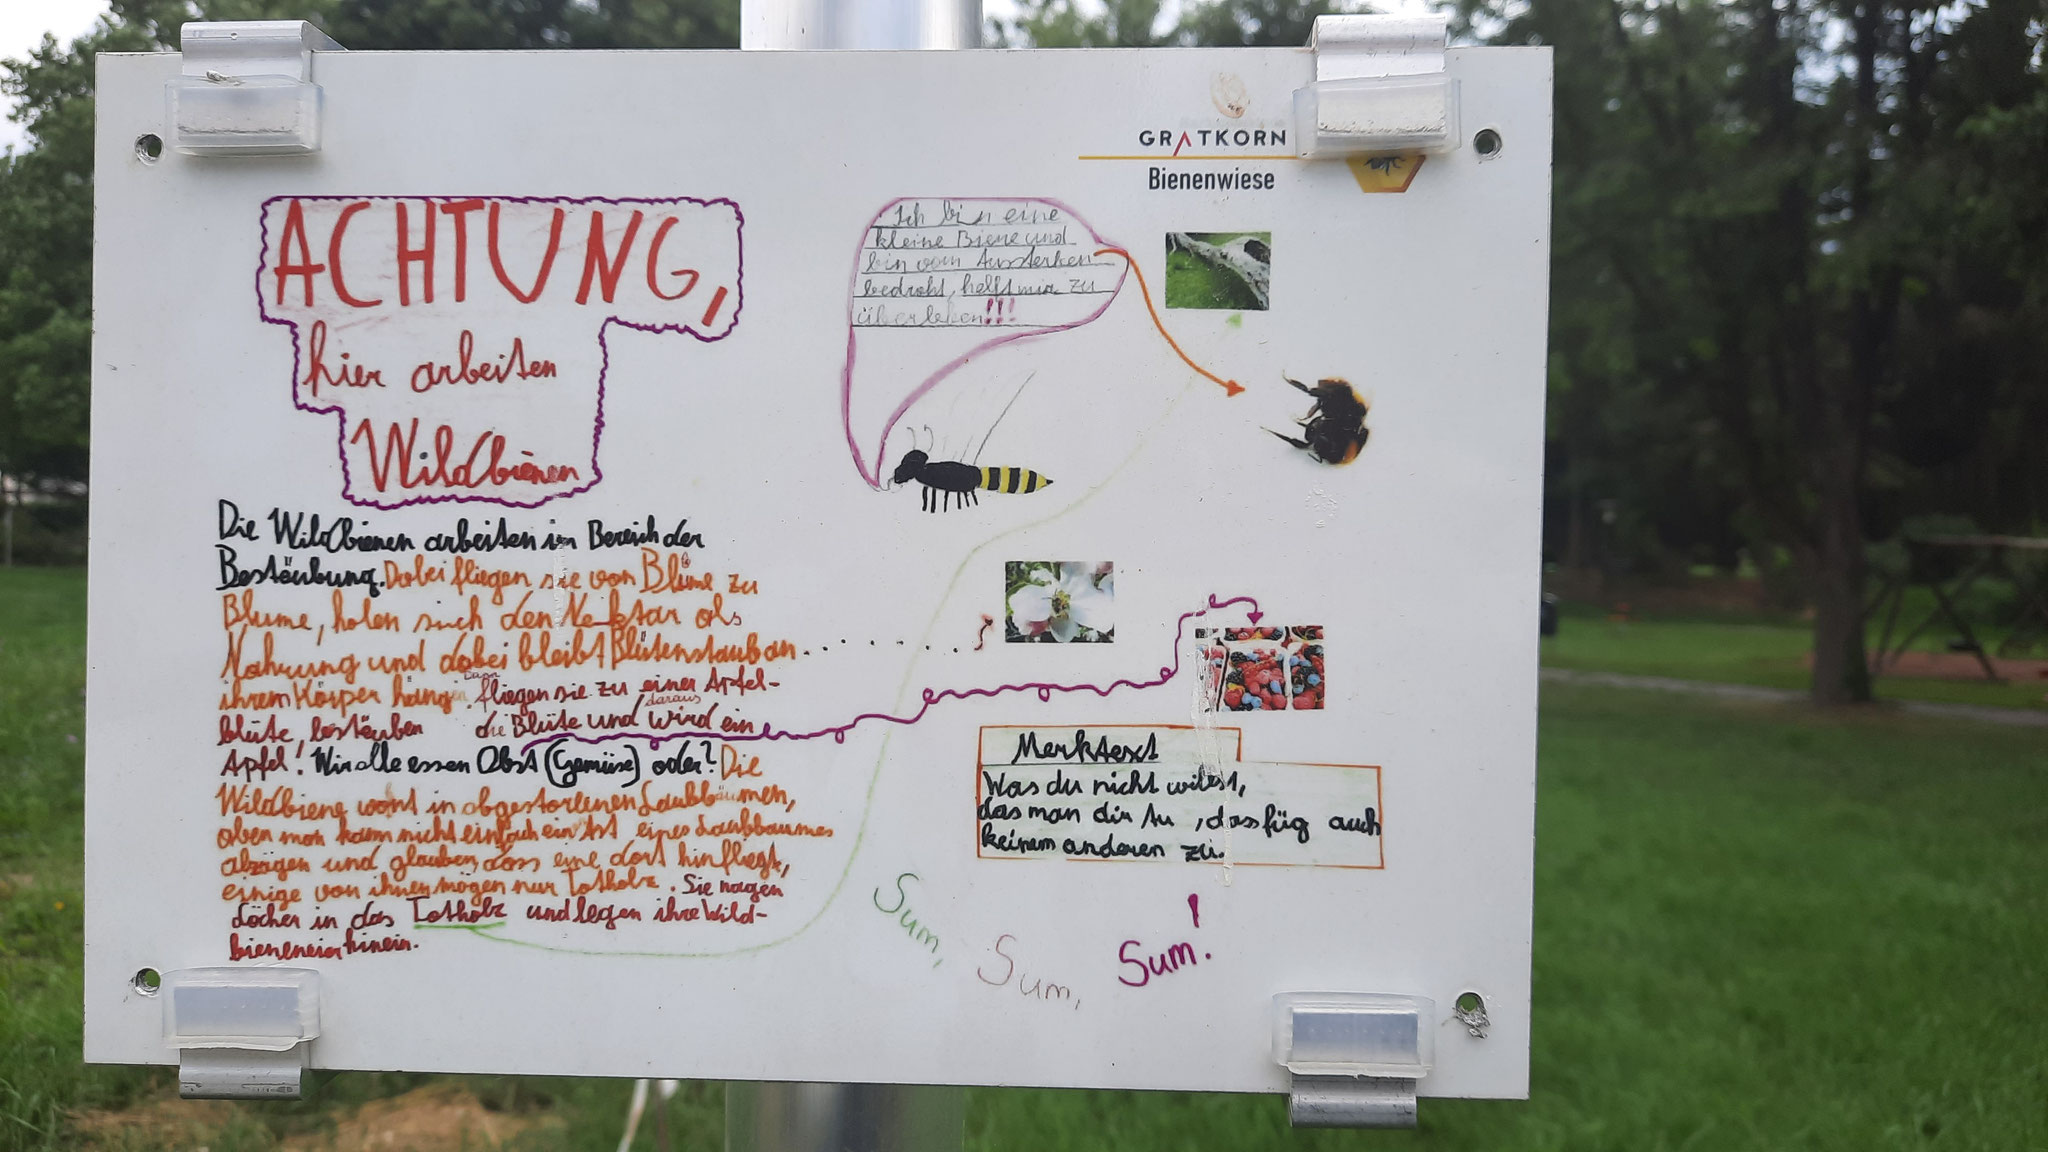 GRATKORN
Bienenwiese
ACHTUNG,
hier arbeiten
Wildbienen
Ich bin eine
kleine Biene und
bin vom Aussterben
bedroht, helft mir zu
überleben!!!
Die Wildbienen arbeiten im Bereich der
Bestäubung. Dabei fliegen sie von Blume zu
Blume, holen sich den Nektar als
Nahrung und dabei bleibt Blütenstaub an
ihrem Körper hängen. Dann fliegen sie zu einer Apfel-
blüte, bestäuben die Blüte und daraus wird ein
Apfel! Wir alle essen Obst (Gemüse) oder? Die
Wildbiene wont in abgestorbenen Laubbäumen,
aber man kann nicht einfach ein Ast eines Laubbaumes
absägen und glauben, dass eine dort hinfliegt,
einige von ihnen mögen nur Totholz. Sie nagen
Löcher in das Totholz und legen ihre Wild-
bieneneier hinein.
Merktext
Was du nicht willst,
das man dir tu, das füg auch
keinem anderen zu.
Sum,
Sum,
Sum!